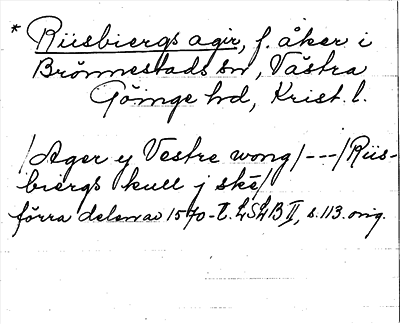 * Riisbiergs agir, f. åker i
Brönnestads sn, Västra
Göinge hd, Krist. l.
/Ager y Vestre wong/---/Riis-
biergs kull j ske/
förra delen av 1570-t. LSLB II, s. 113. orig.